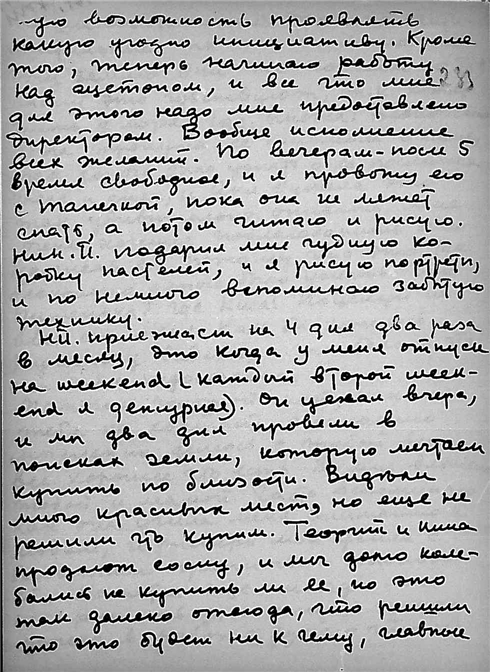 -ую возможность проявлять
какую угодно инициативу. Кроме
того, теперь начинаю работу
над ацетоном, и все что мне 233
для этого надо мне предоставлено
директорам. Вообще исполнение
всех желаний. По вечерам - после 5
время свободное, и я провожу его
с Танечкой, пока она не ляжет
спать, а потом читаю и рисую.
Ник. П. подарил мне чудную ко-
робку пастелей, и я рисую портреты,
и по немногу вспоминаю забытую
технику.
НП. приезжает на 4 дня два раза
в месяц, это когда у меня отпуск
на weekend (каждый второй week-
end я дежурная). Он уехал вчера,
и мы два дня провели в
поисках земли, которую мечтаем
купить по близости. Видели
много красивых мест, но еще не
решили что купим. Георгий и Нина
продают сосну, и мы долго коле-
бались не купить ли ее, но это
так далеко отсюда, что решили
что это будет ни к чему, главное